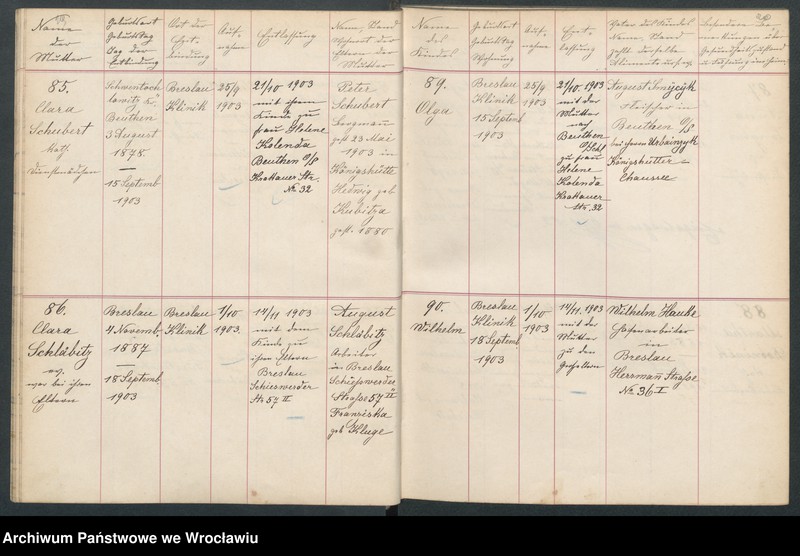 Name
der
Mutter
Geburtsort
Geburtstag
Tag der
Entbindung
Ort der
Ent-
bindung
Auf-
nahme
Entlassung
Name, Stand
Wohnort der
Eltern der
Mutter
Name
des
Kindes
Geburtsort
Geburtstag
Wohnung
Auf-
nahme
Ent-
lassung
Vater des Kindes
Name, Stand
zahlt derselbe
Alimente
Besondere Be-
merkungen über
Gesundheitszustand
85.
Clara
Schubert
Kath.
Schwientoch
lowitz Kr.
Beuthen
3 August
1878.
15 Septemb.
1903
Breslau
Klinik
25/9
1903
21/10 1903
mit ihrem
Kinde zu
Frau Helene
Kolenda
Beuthen O/S
Krakauer Str.
Nr. 32
Peter
Schubert
Bergmann
gest 23 Mai
1903 in
Königshütte
Hedwig geb
Kubitza
gest. 1880
89.
Olga
Breslau
Klinik
15 Septemb
1903
25/9
1903
21/10 1903
mit der
Mutter
nach
Beuthen
O/Schl
zu Frau
Helene
Kolenda
Krakauer
Str. 32
August
Fleischer in
Beuthen O/S
bei Herrn Urbainzyk
Königshütter
Chaussee
86.
Clara
Schläbitz
ev.
war bei ihren
Eltern
Breslau
4 Novemb.
1887
18 Septemb.
1903
Breslau
Klinik
1/10
1903.
14/11 1903
mit dem
Kinde zu
ihren Eltern
Breslau
Schiesswerder
Str 57 II
August
Schläbitz
Arbeiter
in Breslau
Schiesswerder
Straße 57 II
Franziska
geb Kluge
90.
Wilhelm
Breslau
Klinik
18 Septemb
1903
1/10
1903
14/11. 1903
mit der
Mutter
zu den
Großeltern
Wilhelm Hauke
Hafenarbeiter
in
Breslau
Herrmann Straße
Nr. 36 I
Archiwum Państwowe we Wrocławiu